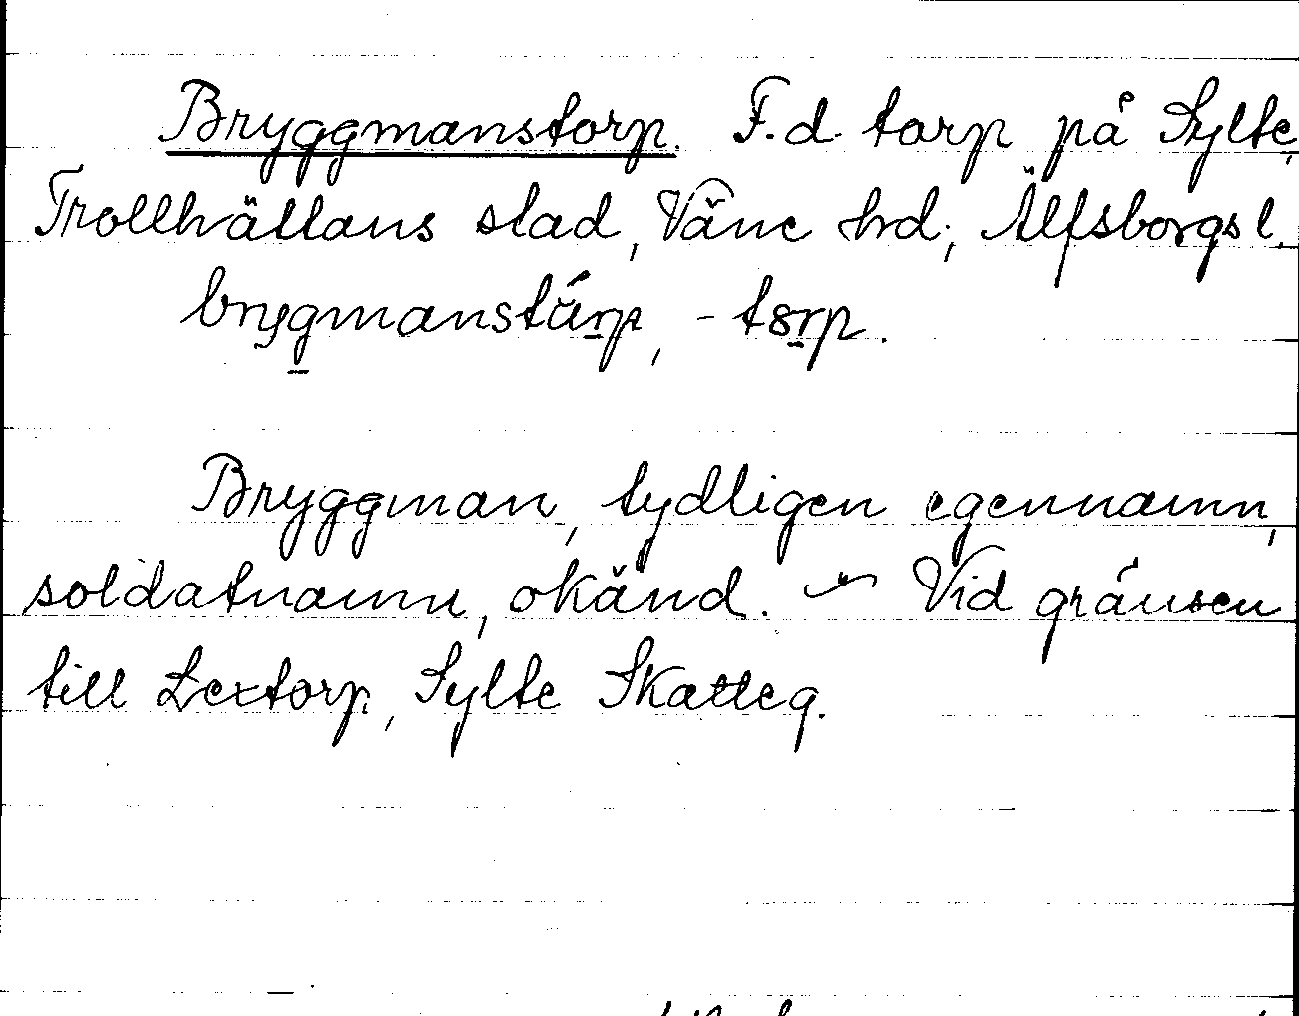 Bryggmanstorp. F.d. torp på Sylte,
Trollhättans stad, Väne hrd., Älfsborgs l.
brygmanstårp, -tørp.
Bryggman, tydligen egennamn,
soldatnamn, okänd. — Vid gränsen
till Lextorp, Sylte Skatteg.